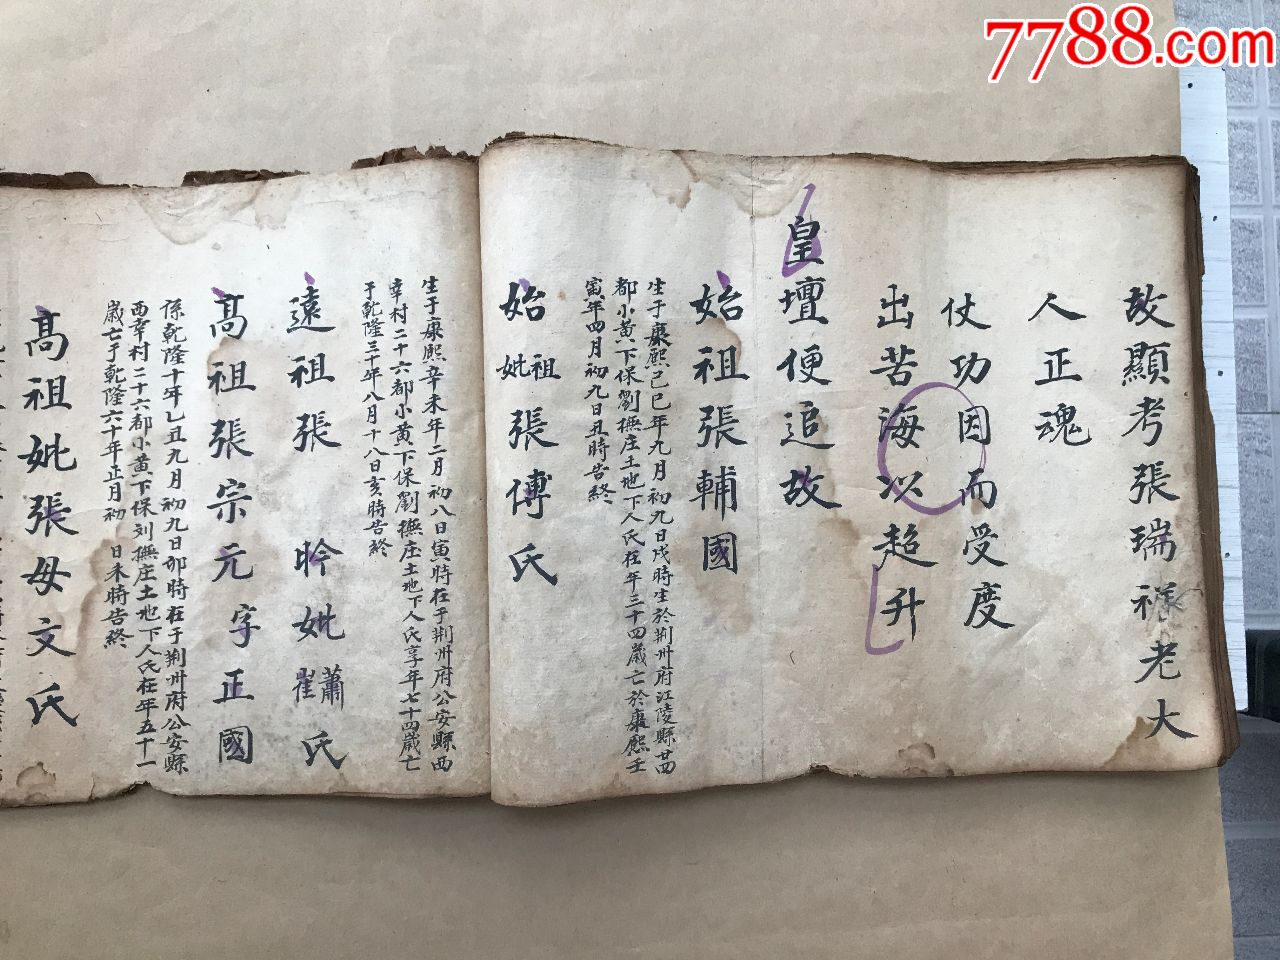 7788.com
故顯考張瑞祥老大
人正魂
仗功因而受度
出苦海以超升
皇壇便追故
始祖張輔國
生于康熙己巳年九月初九日戌時生於荆州府江陵縣西
都小黄下保劉撫庄土地下人氏在年三十四歲亡於康熙壬
寅年四月初九日丑時告終
始祖妣張傅氏
生于康熙辛未年二月初八日寅時在于荆州府公安縣西
辛村二十六都小黄下保劉撫庄土地下人氏享年七十四歲亡
于乾隆三十年八月十八日亥時告終
遠祖張昤妣蕭崔氏
高祖張宗元字正國
係乾隆十年乙丑九月初九日卯時在于荆州府公安縣
西辛村二十六都小黄下保刘撫庄土地下人氏在年五十一
歲亡于乾隆六十年正月初 日未時告終
高祖妣張母文氏